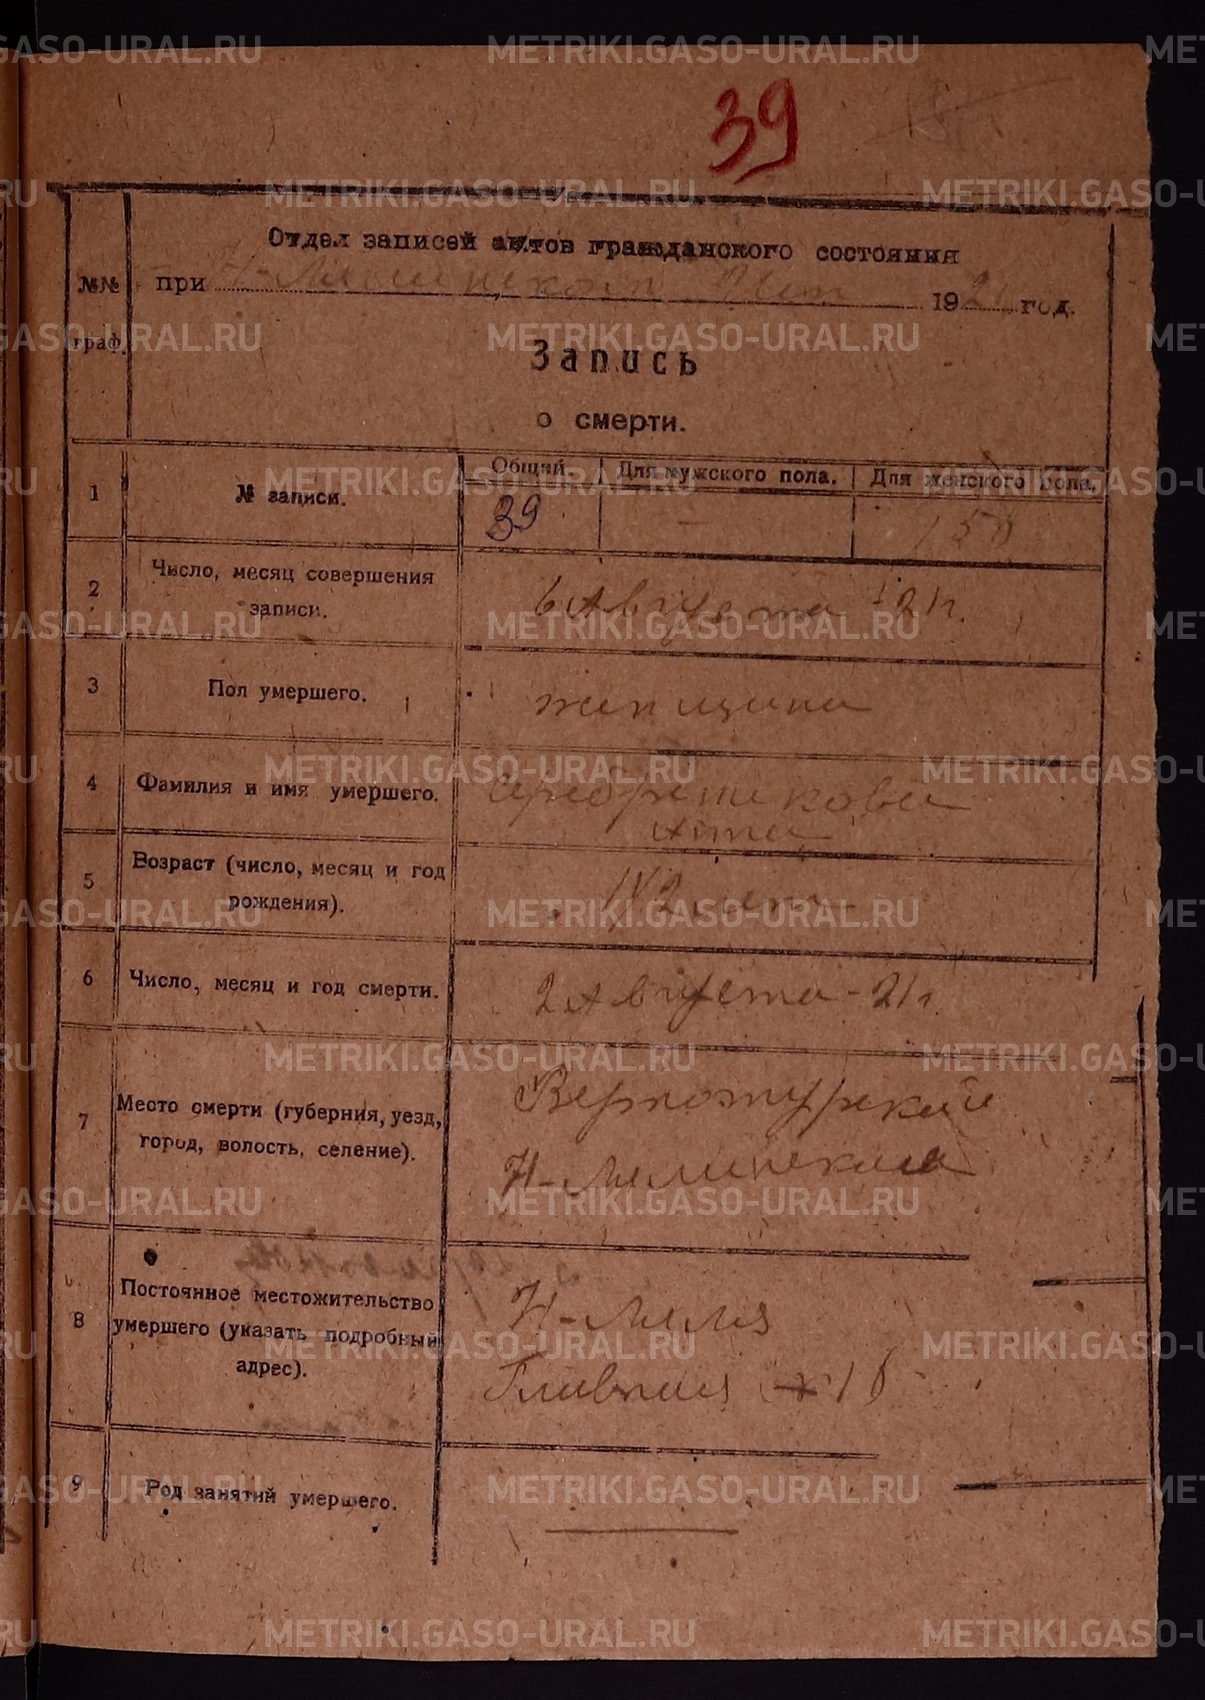 39
Отдел записей актов гражданского состояния
№№ граф.
при Н-Лялинском 1921 год.
Запись
о смерти.
1 № записи. Общий. Для мужского пола. Для женского пола.
39 — 158
2 Число, месяц совершения записи. 6 Августа -21 г.
3 Пол умершего. женщина
4 Фамилия и имя умершего. Серебренникова
5 Возраст (число, месяц и год рождения). лет
6 Число, месяц и год смерти. 2 Августа - 21 г.
7 Место смерти (губерния, уезд, город, волость, селение). Верхотурский
Н-Лялинская
8 Постоянное местожительство умершего (указать подробный адрес). Н-Ляля
Главная 18
9 Род занятий умершего. —
METRIKI.GASO-URAL.RU